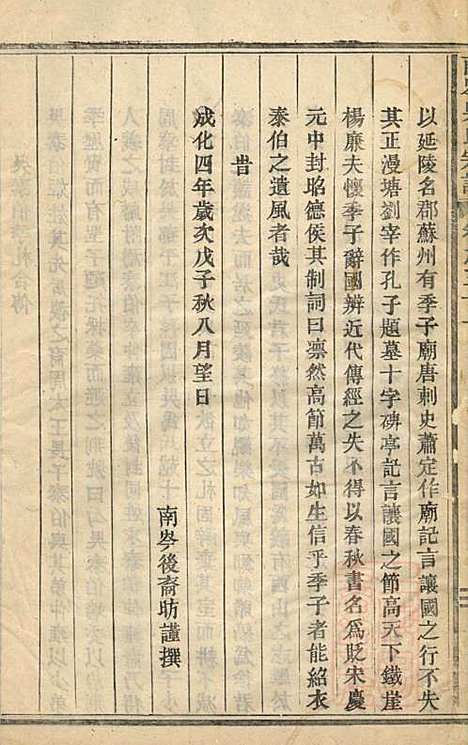 以延陵名郡蘇州有季子廟唐刺史蕭定作廟記言讓國之行不失
其正漫塘劉宰作孔子題墓十字碑亭記言讓國之節高天下鐵崖
楊廉夫懷季子辭國辨近代傳經之失不得以春秋書名為貶宋慶
元中封昭德侯其制詞曰凛然高節萬古如生信乎季子者能紹衣
泰伯之遺風者哉
旹
成化四年歲次戊子秋八月望日
南岑後裔昉謹撰